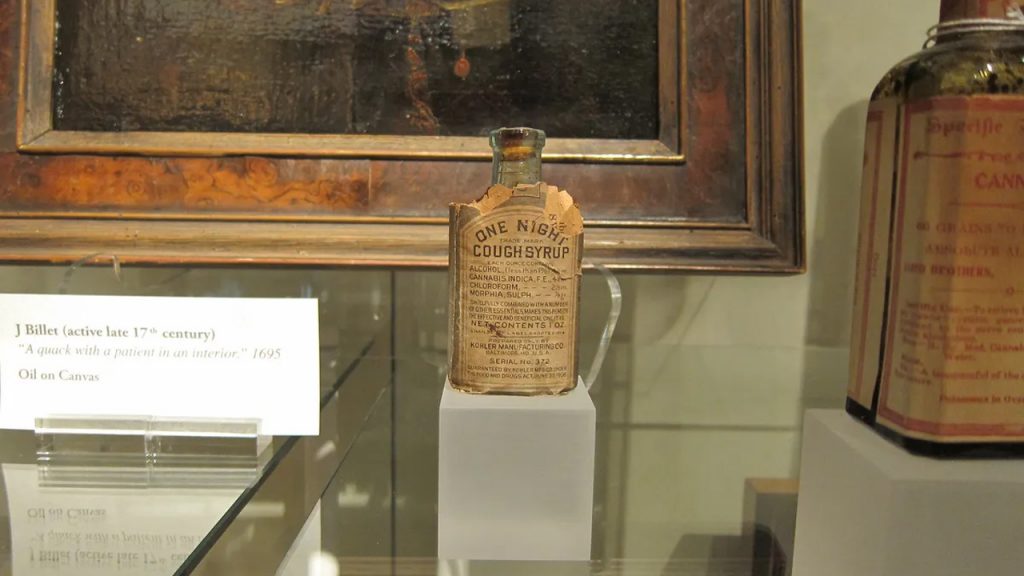 J Billet (active late 17th century)
"A quack with a patient in an interior." 1695
Oil on Canvas
ONE NIGHT
TRADE MARK
COUGH SYRUP
EACH OUNCE CONTAINS
ALCOHOL, (less than
CANNABIS INDICA, F.E.,
CHLOROFORM,
MORPHIA, SULPH,
SKILFULLY COMBINED WITH A NUMBER
OF OTHER ESSENTIALS MAKES THIS REMEDY
NET CONTENTS 1 OZ
PREPARED ONLY BY
KOHLER MANUFACTURING CO.
BALTIMORE, MD. U.S.A.
SERIAL No. 372
GUARANTEED BY KOHLER MFG. CO. UNDER
THE FOOD AND DRUGS ACT, JUNE 30, 1906
Specific
CANN
60 GRAINS TO
ABSOLUTE AL
Water.
Oil on Canvas
"A quack with a patient in an
J Billet (active late 17th cen